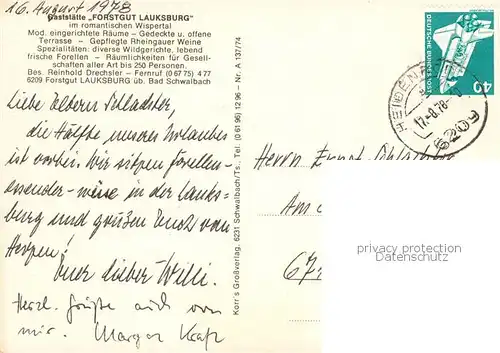 16. August 1978
Gaststätte „FORSTGUT LAUKSBURG"
im romantischen Wispertal
Mod. eingerichtete Räume – Gedeckte u. offene
Terrasse – Gepflegte Rheingauer Weine
Spezialitäten: diverse Wildgerichte, lebend
frische Forellen – Räumlichkeiten für Gesell-
schaften aller Art bis 250 Personen.
Bes. Reinhold Drechsler – Fernruf (0 67 75) 4 77
6209 Forstgut LAUKSBURG üb. Bad Schwalbach
Liebe Eltern Schlachter,
die Hälfte unseres Urlaubes
ist vorbei. Wir sitzen forellen-
essender-weise in der Lauks-
burg und grüßen Euch von
Herzen!
Euer lieber Willi.
Herzl. Grüße auch von
mir. Margot Kraft
Korr's Großverlag, 6231 Schwalbach/Ts., Tel. (0 61 96) 12 96 - Nr. A 137/74
DEUTSCHE BUNDESPOST
40
17.-8.78
6209
Herrn Ernst
Am
67
privacy protection
Datenschutz